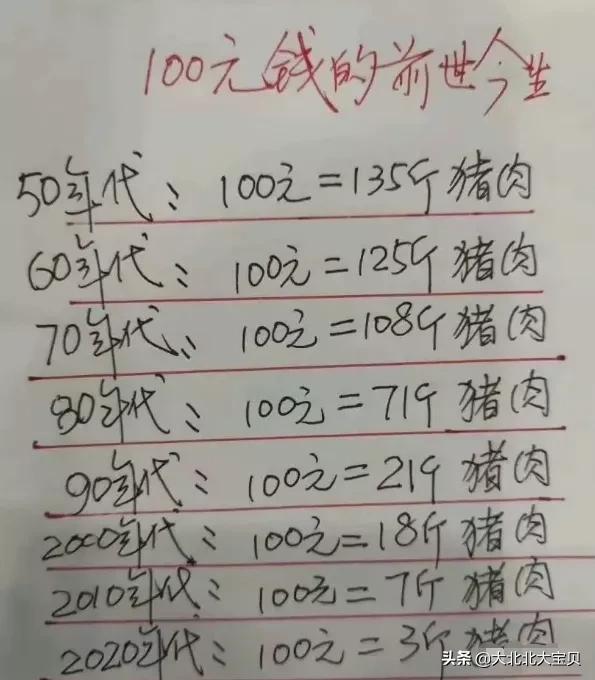 100元钱的前世今生
50年代：100元=135斤猪肉
60年代：100元=125斤猪肉
70年代：100元=108斤猪肉
80年代：100元=71斤猪肉
90年代：100元=21斤猪肉
2000年代：100元=18斤猪肉
2010年代：100元=7斤猪肉
2020年代：100元=3斤猪肉
头条 @大北北大宝贝